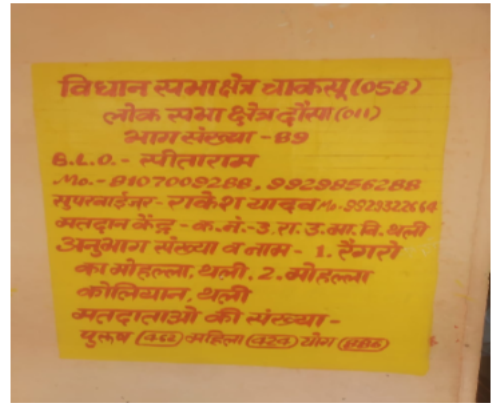 विधान सभा क्षेत्र चाकसू (058)
लोक सभा क्षेत्र दौसा (011)
भाग संख्या - 89
B.L.O. - सीताराम
Mo. - 8107009288, 9929856288
सुपरवाईजर - राकेश यादव Mo. 9929322664
मतदान केंद्र - क.नं.-3 रा.उ.मा.वि. थली
अनुभाग संख्या व नाम - 1. रैगरो
का मोहल्ला, थली, 2. मोहल्ला
कोलियान, थली
मतदाताओ की संख्या -
पुरूष (462) महिला (424) योग (886)